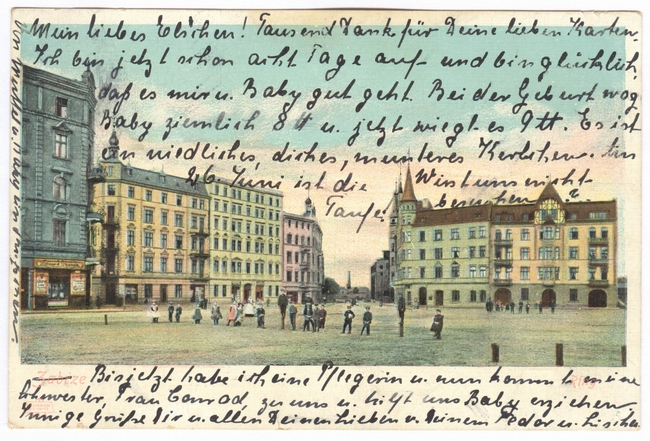 Mein liebes Elschen! Tausend Dank für Deine lieben Karten.
Ich bin jetzt schon acht Tage auf und bin glücklich,
daß es mir u. Baby gut geht. Bei der Geburt wog
Baby ziemlich 8 tt u. jetzt wiegt es 9 tt. Es ist
ein niedliches, dickes, munteres Kerlchen. Am
26. Juni ist die Wirst uns nicht
Taufe! besuchen?
Zabrze
Bis jetzt habe ich eine Pflegerin u. nun kommt eine
Schwester, Frau Conrad, zu uns u. hilft uns Baby erziehen
Innige Grüße Dir u. allen Deinen Lieben v. Deinem Fedor u.